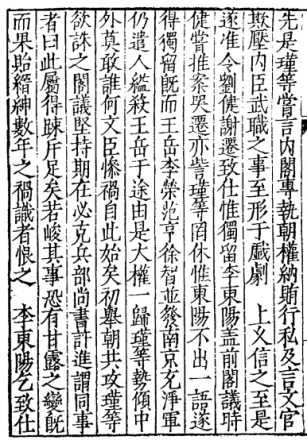 先是瑾等嘗言內閣專執朝權納賄行私及言文官
欺壓內臣武職之事至形于戲劇　上又信之至是
遂准令劉健謝遷致仕惟獨留李東陽蓋前閣議時
健嘗推案哭遷亦訾瑾等罔休惟東陽不出一語遂
得獨留旣而王岳李榮范亨徐智並發南京充淨軍
仍遣人縊殺王岳于途由是大權一歸瑾等勢傾中
外莫敢誰何文臣慘禍自此始矣初舉朝共攻瑾等
欲誅之閣議堅持期在必克兵部尚書許進謂同事
者曰此屬得疎斥足矣若峻其事恐有甘露之變旣
而果貽縉紳數年之禍識者恨之　李東陽乞致仕